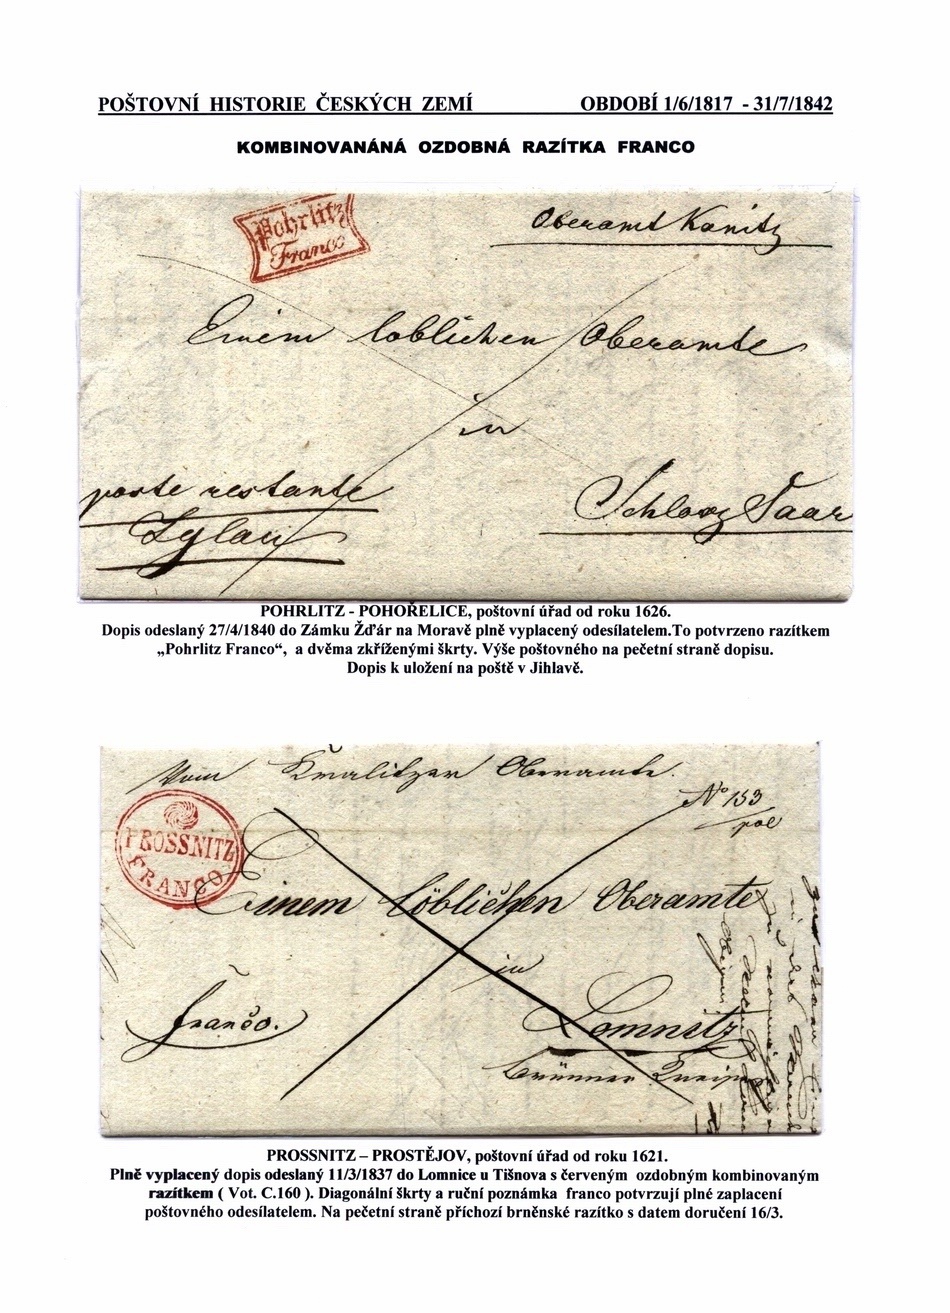 POŠTOVNÍ HISTORIE ČESKÝCH ZEMÍ OBDOBÍ 1/6/1817 - 31/7/1842
KOMBINOVANÁNÁ OZDOBNÁ RAZÍTKA FRANCO
Pohrlitz
Franco
Oberamt Kanitz
Einem löblichen Oberamte
in
poste restante
Iglau
Schloss Saar
POHRLITZ - POHOŘELICE, poštovní úřad od roku 1626.
Dopis odeslaný 27/4/1840 do Zámku Žďár na Moravě plně vyplacený odesílatelem.To potvrzeno razítkem
„Pohrlitz Franco“, a dvěma zkříženými škrty. Výše poštovného na pečetní straně dopisu.
Dopis k uložení na poště v Jihlavě.
Vom Kralitzer Oberamte.
No 153
PROSSNITZ
FRANCO
Einem löblichen Oberamte
in
Franco.
Lomnitz
Brünner
PROSSNITZ – PROSTĚJOV, poštovní úřad od roku 1621.
Plně vyplacený dopis odeslaný 11/3/1837 do Lomnice u Tišnova s červeným ozdobným kombinovaným
razítkem ( Vot. C.160 ). Diagonální škrty a ruční poznámka franco potvrzují plné zaplacení
poštovného odesílatelem. Na pečetní straně příchozí brněnské razítko s datem doručení 16/3.